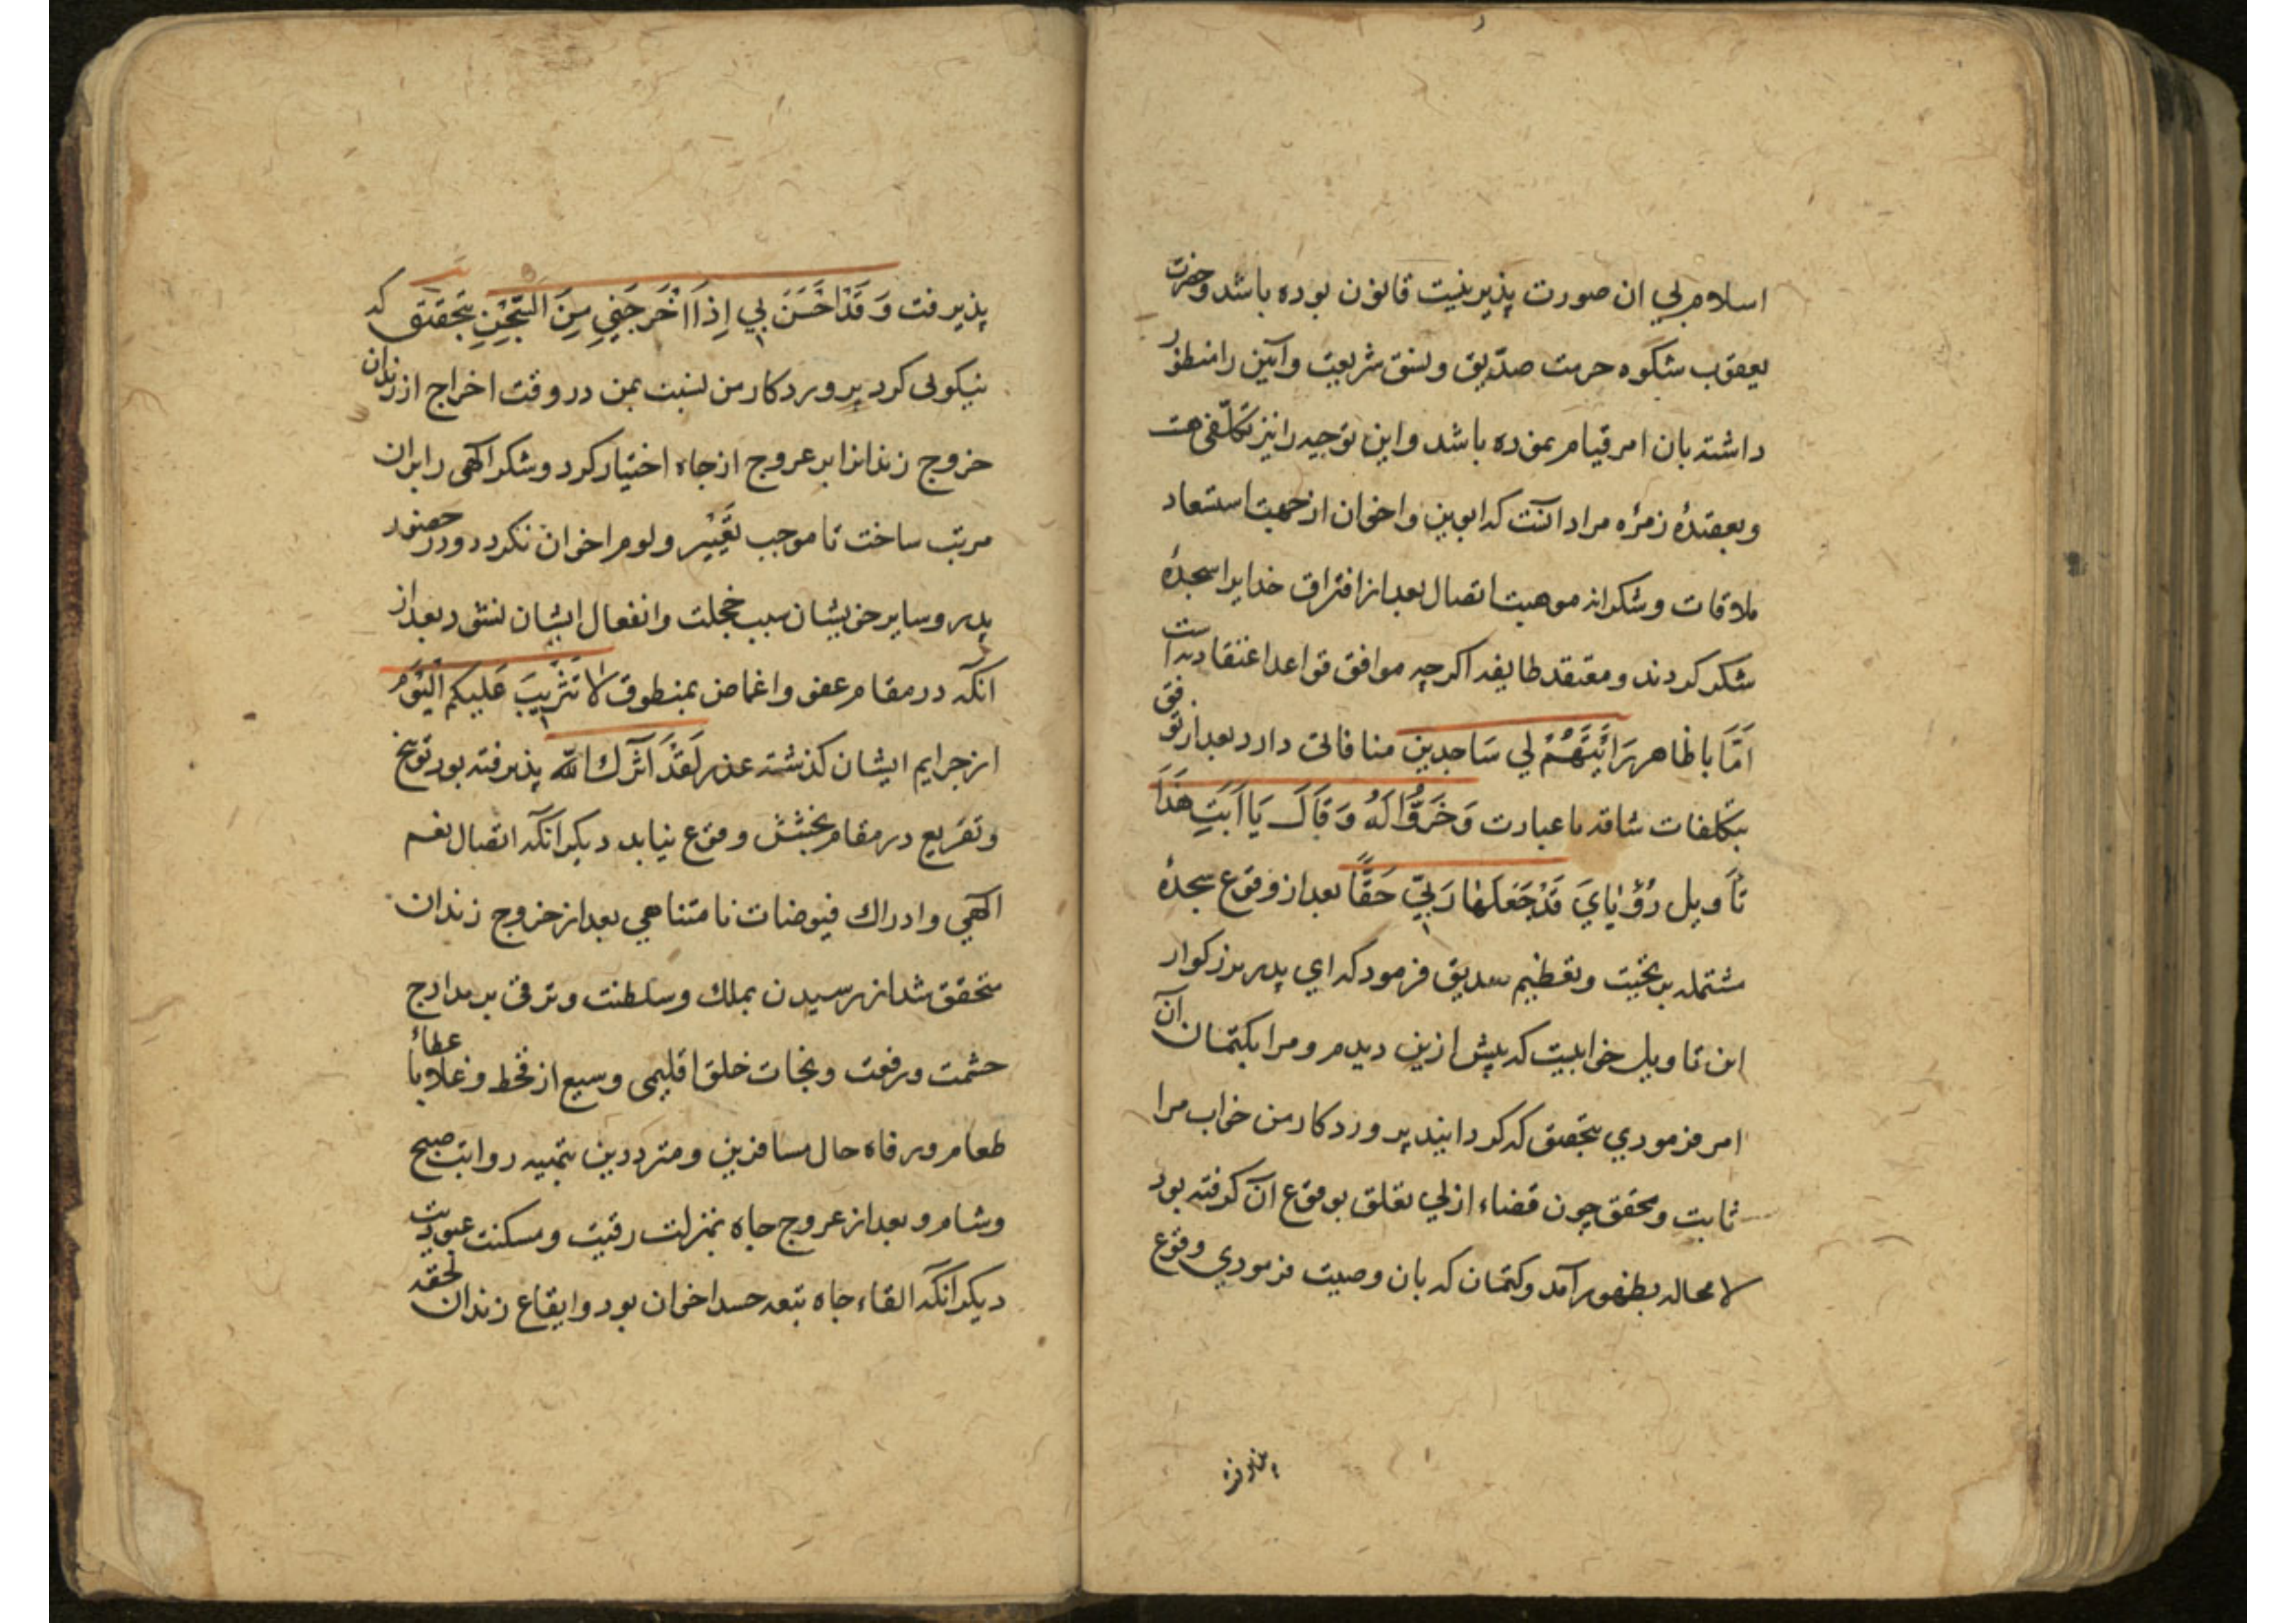 اسلام لي ان صورت پذیر بنیت قانون بوده باشد وحضرت
یعقوب شکوه حرمت صدّیق ونسق شریعت وآیین را منظور
داشته بان امر قیام نموده باشد واین توجیه را نیز تکلّفی هست
وبعقیدۀ زمرۀ مراد آنست که ابوین واخوان از جهت استسعاد
ملاقات وشکرانه موهبت اتصال بعد از افتراق خدایرا سجدۀ
شکر کردند ومعتقد طایفه اکرچه موافق قواعد اعتقاد یه است
اَمَّا باظاهر رَاَیْتَهُمْ لِي سَاجِدِین منافاتی دارد بعد از توفق
بتکلفات شاقه با عبارت وَخَرُّوا لَهُ وَقَالَ یَا اَبَتِ هَذَا
تَأویل رُؤْیَايَ قَدْ جَعَلَهَا رَبِّي حَقًّا بعد از وقوع سجدۀ
مشتمله بر تحیّت وتعظیم صدیق فرمود که اي پدر بزرکوار
این تاویل خوابیست که پیش ازین دیدم ومرا بکتمان آن
امر فرمودي بتحقیق که کردانید پروردکار من خواب مرا
ثابت ومحقق چون قضاء ازلي تعلق بوقوع آن کرفته بود
لا محاله بظهور آمد وکتمان که بان وصیت فرمودي وقوع
پذیرفت وَقَدْ اَحْسَنَ بِي اِذْ اَخْرَجَنِي مِنَ السِّجْنِ بتحقیق که
نیکوئی کرد پروردکار من نسبت بمن در وقت اخراج از زندان
خروج زندانرا بر عروج از جاه اختیار کرد وشکر الهی را بران
مرتب ساخت تا موجب تَعْیِیر ولوم اخوان نکردد ودر حضور
پدر وسایر خویشان سبب خجلت وانفعال ایشان نشود بعد از
انکه در مقام عفو واغماض بمنطوق لَا تَثْرِیبَ عَلَیکم الْیَوْمَ
از جرایم ایشان کذشته عذر لَقَدْ آثَرَكَ اللّٰه پذیرفته بود توبیخ
وتقریع در مقام بخشش وقوع نیابد دیکر انکه اتصال نعم
الهي وادراك فیوضات نامتناهي بعد از خروج زندان
متحقق شد از رسیدن بملك وسلطنت وترقی بر مدارج
حشمت ورفعت ونجات خلق اقلیمی وسیع از قحط وغلا باعطاء
طعام ورفاه حال مسافرین ومترددین بتهیه رواتب صبح
وشام وبعد از عروج جاه بمنزلت رقیت ومسکنت عبودیت
دیکر آنکه القاء جاه بتبعه حسد اخوان بود وایقاع زندان